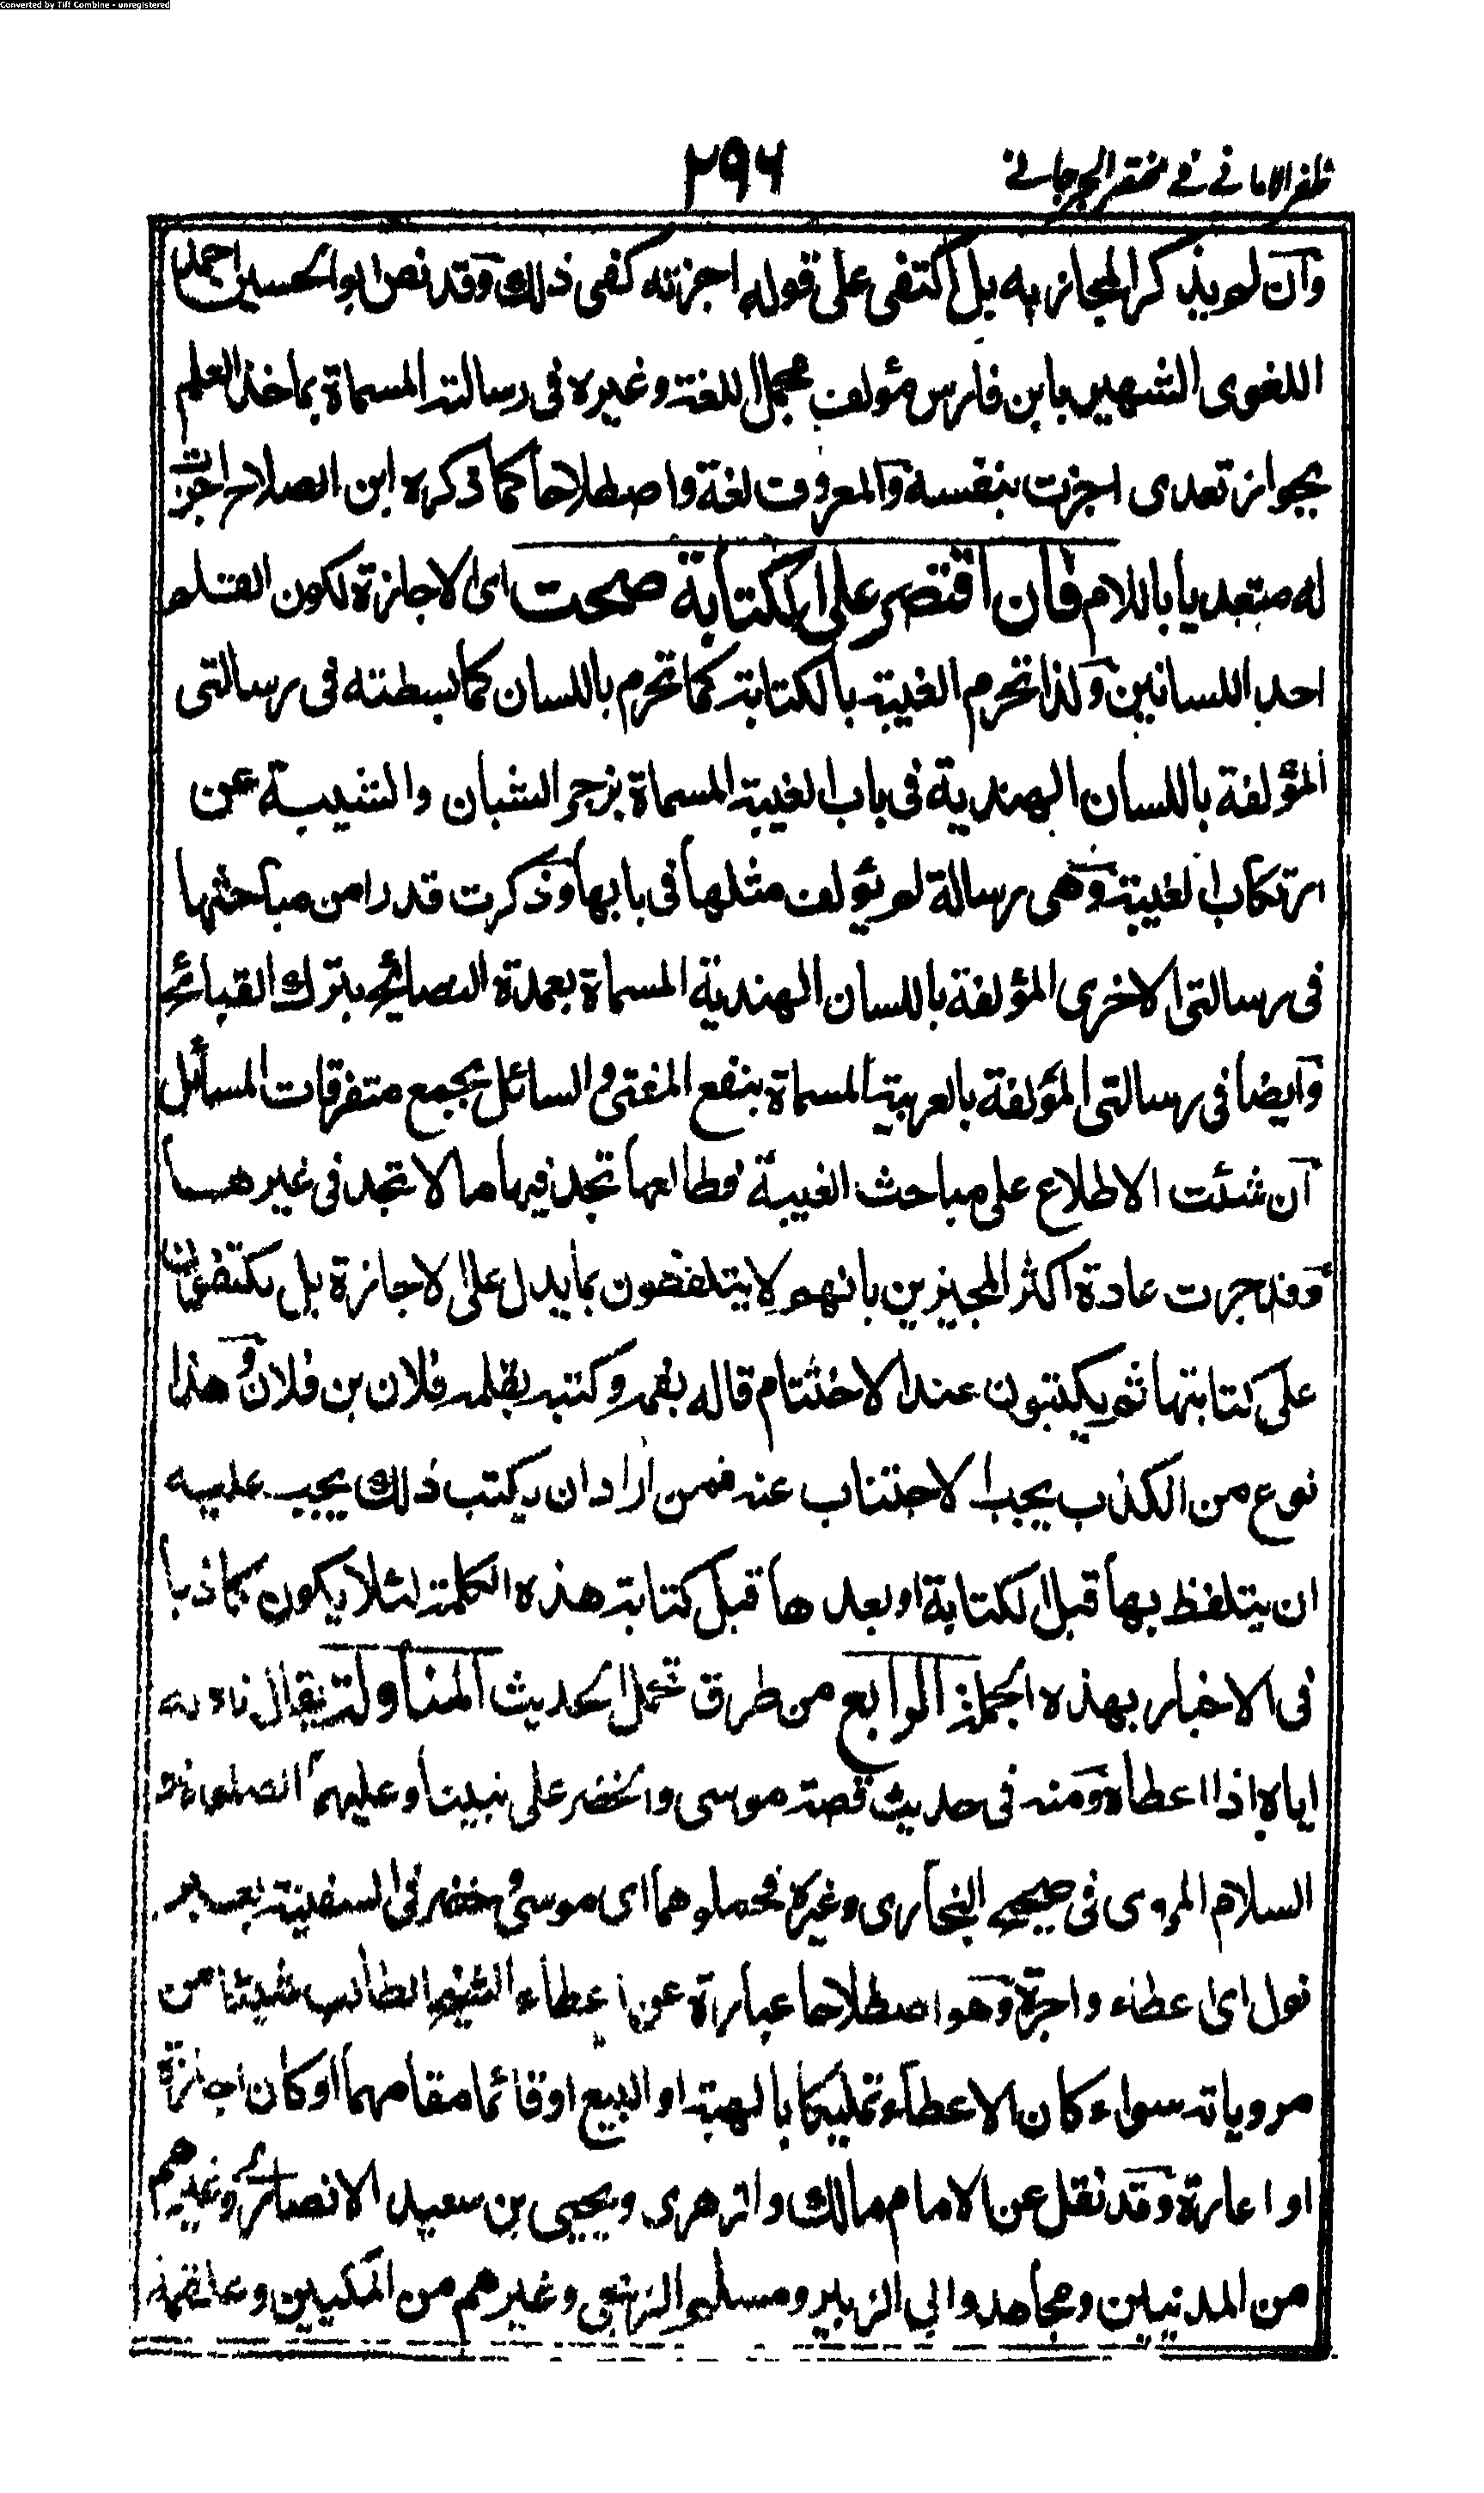 Converted by Tiff Combine - unregistered
ظفر الامانی فی مختصر الجرجانی
۲۹۶
وان لم یذکر المجاز به بل اکتفی علی قوله اجزته کفی ذلك وقد نص ابو الحسین احمد
اللغوی الشهیر بابن فارس مؤلف مجمل اللغة وغیره فی رسالته المسماة بماخذ العلم
بجواز تعدی اجزت بنفسه والمعروف لغة واصطلاحا کما ذکره ابن الصلاح اجزت
له متعدیا باللام فان اقتصر علی الکتابة صحت ای الاجازة لکون القلم
احد اللسانین ولذا تحرم الغیبة بالکتابة کما تحرم باللسان کما بسطته فی رسالتی
المؤلفة باللسان الهندیة فی باب الغیبة المسماة بزجر الشبان والشیبة عن
ارتکاب الغیبة وهی رسالة لم یؤلف مثلها فی بابها وذکرت قدرا من مباحثها
فی رسالتی الاخری المؤلفة باللسان الهندیة المسماة بعمدة النصائح بترك القبائح
وایضا فی رسالتی المؤلفة بالعربیة المسماة بنفع المفتی والسائل بجمع متفرقات المسائل
ان شئت الاطلاع علی مباحث الغیبة فطالعها تجد فیها ما لا تجد فی غیرها
وقد جرت عادة اکثر المجیزین بانهم لا یتلفظون بما یدل علی الاجازة بل یکتفون
علی کتابتها ثم یکتبون عند الاختتام قاله بفمه وکتبه بقلمه فلان بن فلان وهذا
نوع من الکذب یجب الاجتناب عنه فمن اراد ان یکتب ذلك یجب علیه
ان یتلفظ بها قبل الکتابة او بعدها قبل کتابة هذه الکلمة لئلا یکون کاذبا
فی الاخبار بهذه الجملة الرابع من طرق تحمل الحدیث المناولة یقال ناوله
ایاه اذا اعطاه ومنه فی حدیث قصة موسی والخضر علی نبینا وعلیهما الصلوة و
السلام المروی فی صحیح البخاری وغیره فحملوهما ای موسی وخضر فی السفینة بغیر
نول ای عطاء واجرة وهو اصطلاحا عبارة عن اعطاء الشیخ الطالب شیئا من
مرویاته سواء کان الاعطاء تملیکا بالهبة او البیع او قائما مقامهما او کان اجازة
او اعارة وقد نقل عن الامام مالك والزهری ویحیی بن سعید الانصاری وغیرهم
من المدنیین ومجاهد وابی الزبیر ومسلم الزنجی وغیرهم من المکیین وعلقمة